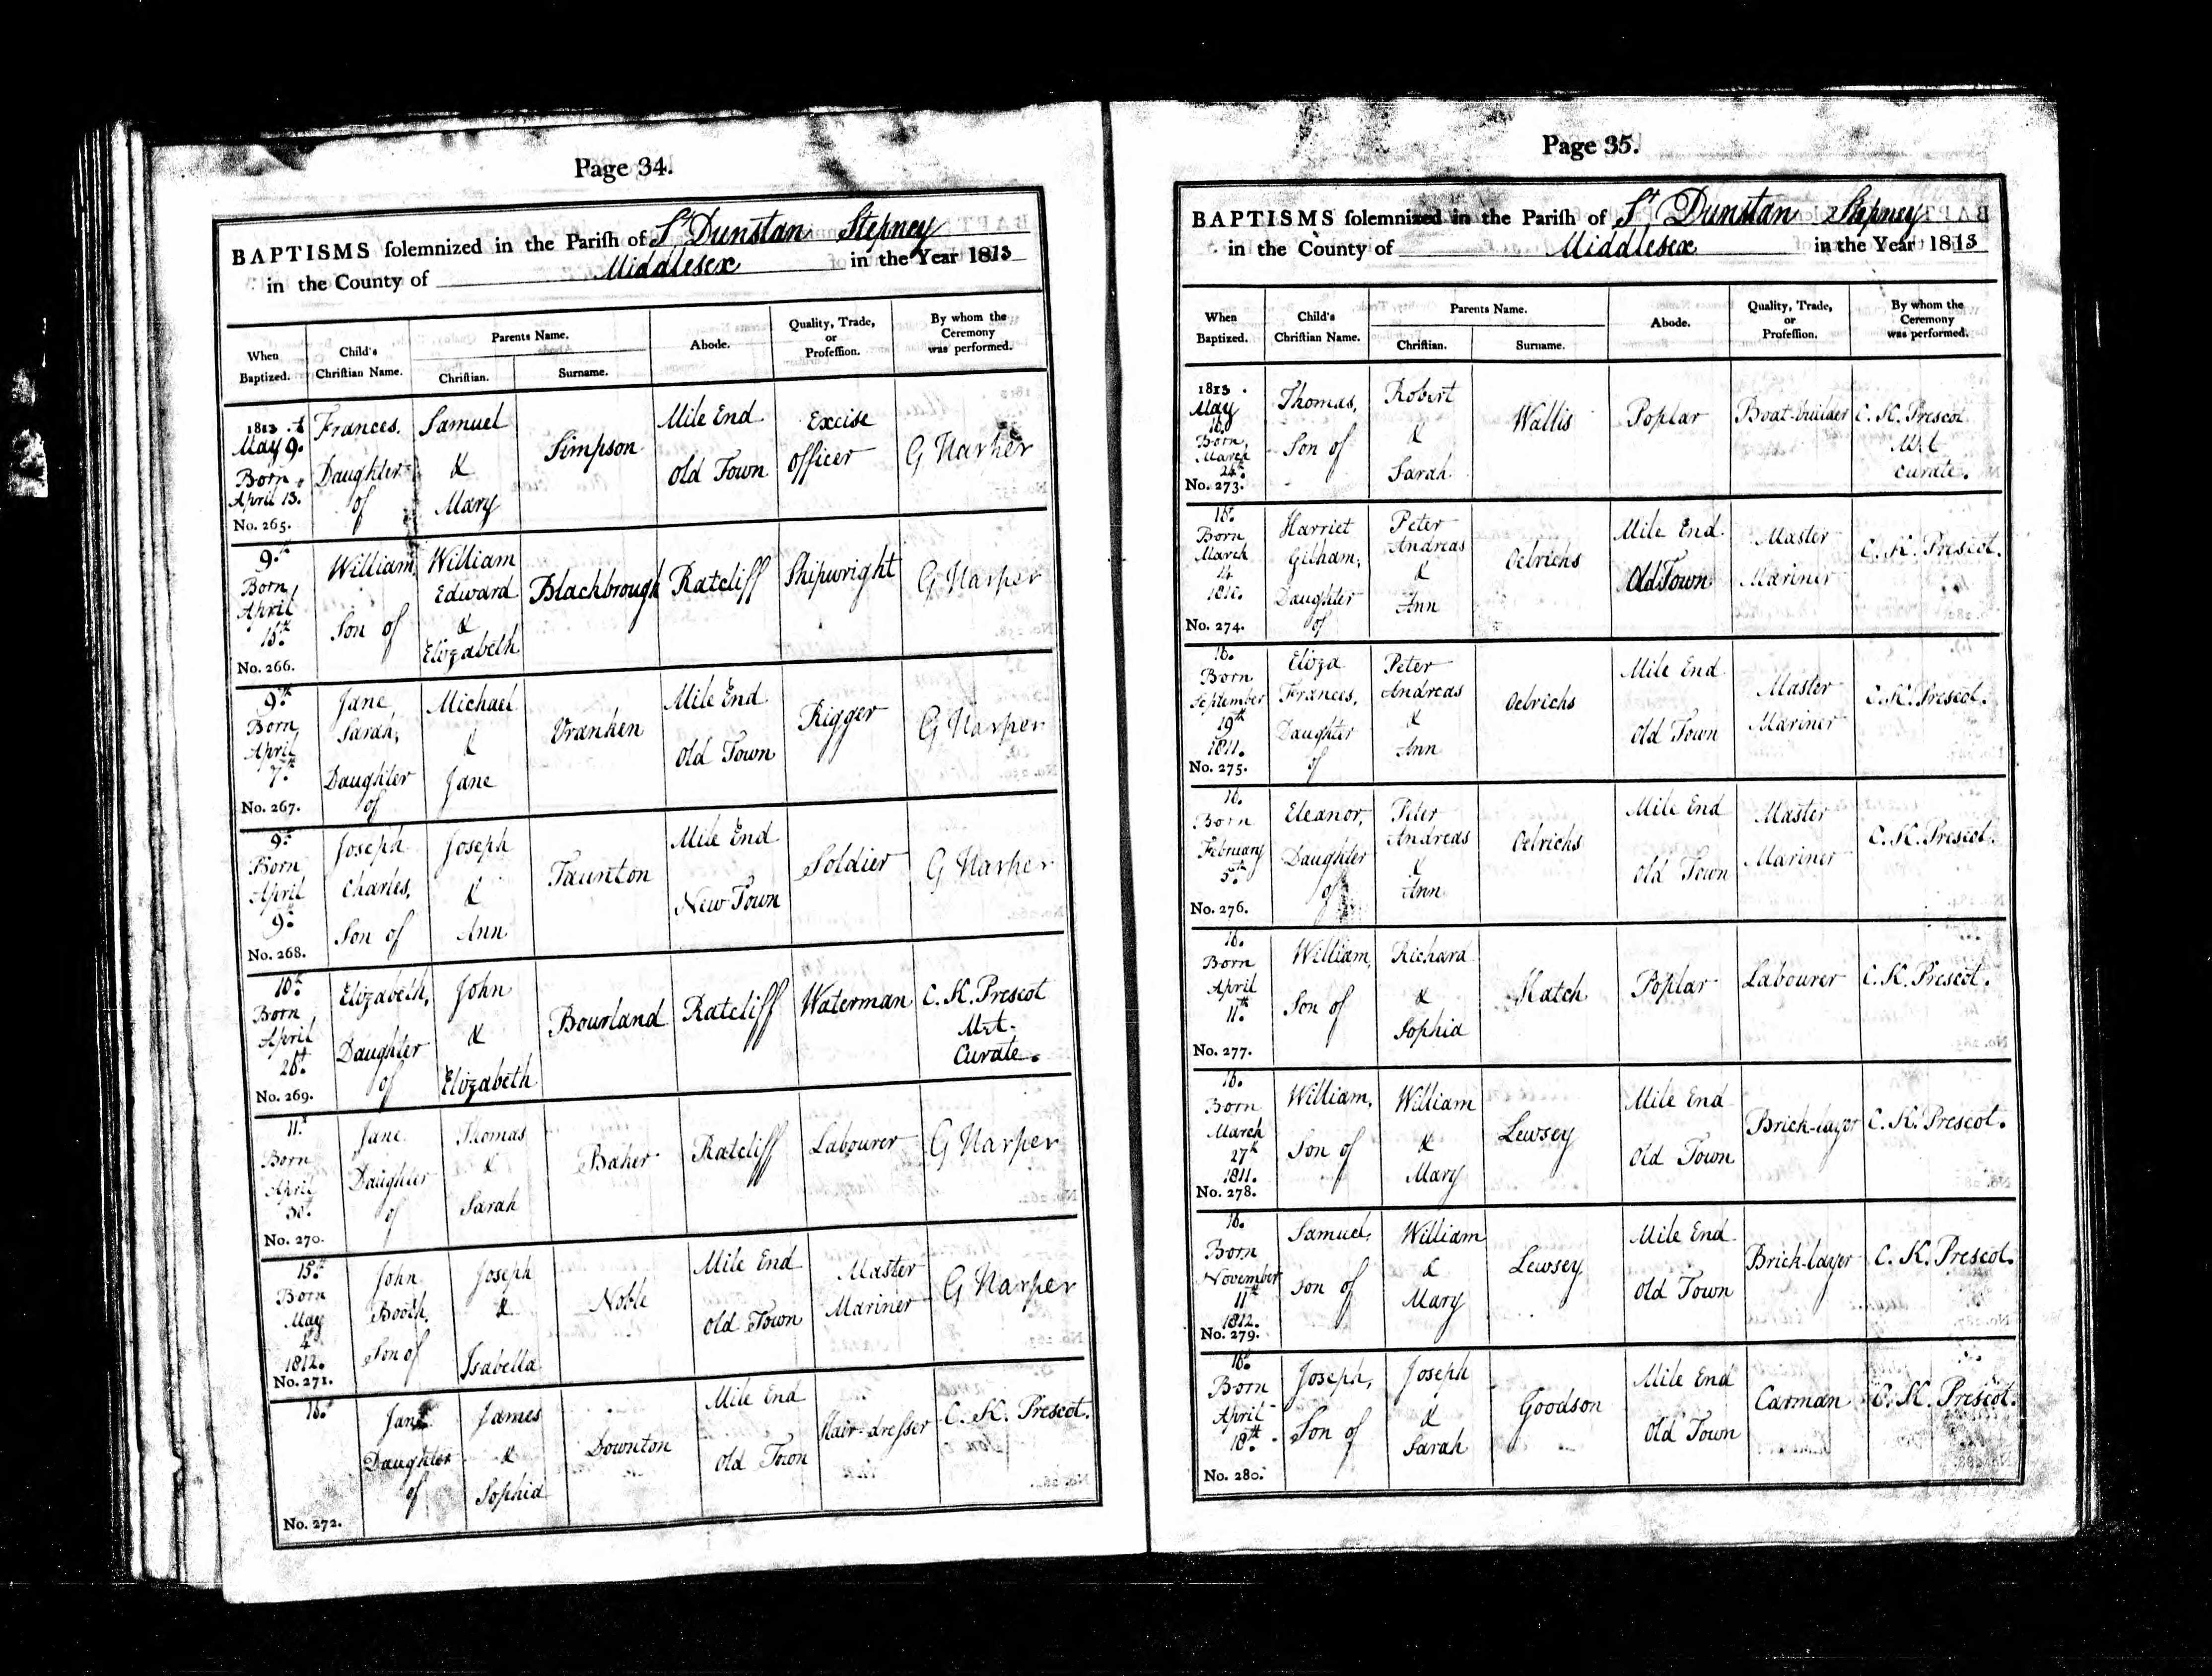 Page 34.
BAPTISMS solemnized in the Parish of St Dunstan Stepney
in the County of Middlesex in the Year 1813
When Baptized.
Child's Christian Name.
Parents Name.
Christian.
Surname.
Abode.
Quality, Trade, or Profession.
By whom the Ceremony was performed.
1813. May 9. Born April 13. No. 265.
Frances. Daughter of
Samuel & Mary
Simpson
Mile End Old Town
Excise Officer
G Harper
9th Born April 15th No. 266.
William, Son of
William Edward & Elizabeth
Blackbrough
Ratcliff
Shipwright
G Harper
9th Born April 7th No. 267.
Jane Sarah, Daughter of
Michael & Jane
Vranken
Mile End Old Town
Rigger
G Harper
9th Born April 9th No. 268.
Joseph Charles, Son of
Joseph & Ann
Taunton
Mile End New Town
Soldier
G Harper
10th Born April No. 269.
Elizabeth, Daughter of
John & Elizabeth
Bourland
Ratcliff
Waterman
C. K. Prescot Curate.
11th Born April 30th No. 270.
Jane Daughter of
Thomas & Sarah
Baker
Ratcliff
Labourer
G Harper
15th Born May 4th 1812. No. 271.
John Booth, Son of
Joseph & Isabella
Noble
Mile End Old Town
Master Mariner
G Harper
16. No. 272.
Jane Daughter of
James & Sophia
Downton
Mile End Old Town
Hair-dresser
C. K. Prescot.
Page 35.
BAPTISMS solemnized in the Parish of St Dunstan Stepney
in the County of Middlesex in the Year 1813
When Baptized.
Child's Christian Name.
Parents Name.
Christian.
Surname.
Abode.
Quality, Trade, or Profession.
By whom the Ceremony was performed.
1813. May 16. Born March No. 273.
Thomas, Son of
Robert & Sarah
Wallis
Poplar
Boat-builder
C. K. Prescot Curate.
16. Born March No. 274.
Harriet Daughter of
Peter Andreas & Ann
Oelrichs
Mile End Old Town
Master Mariner
C. K. Prescot.
16. Born September 19th 1811. No. 275.
Eliza Frances, Daughter of
Peter Andreas & Ann
Oelrichs
Mile End Old Town
Master Mariner
C. K. Prescot.
16. Born February 5th No. 276.
Eleanor, Daughter of
Peter Andreas & Ann
Oelrichs
Mile End Old Town
Master Mariner
C. K. Prescot.
16. Born April 11th No. 277.
William, Son of
Richard & Sophia
Hatch
Poplar
Labourer
C. K. Prescot.
16. Born March 27th 1811. No. 278.
William, Son of
William & Mary
Lewsey
Mile End Old Town
Brick-layer
C. K. Prescot.
16. Born November 11th 1812. No. 279.
Samuel, Son of
William & Mary
Lewsey
Mile End Old Town
Brick-layer
C. K. Prescot.
16. Born April 18th No. 280.
Joseph, Son of
Joseph & Sarah
Goodson
Mile End Old Town
Carman
C. K. Prescot.